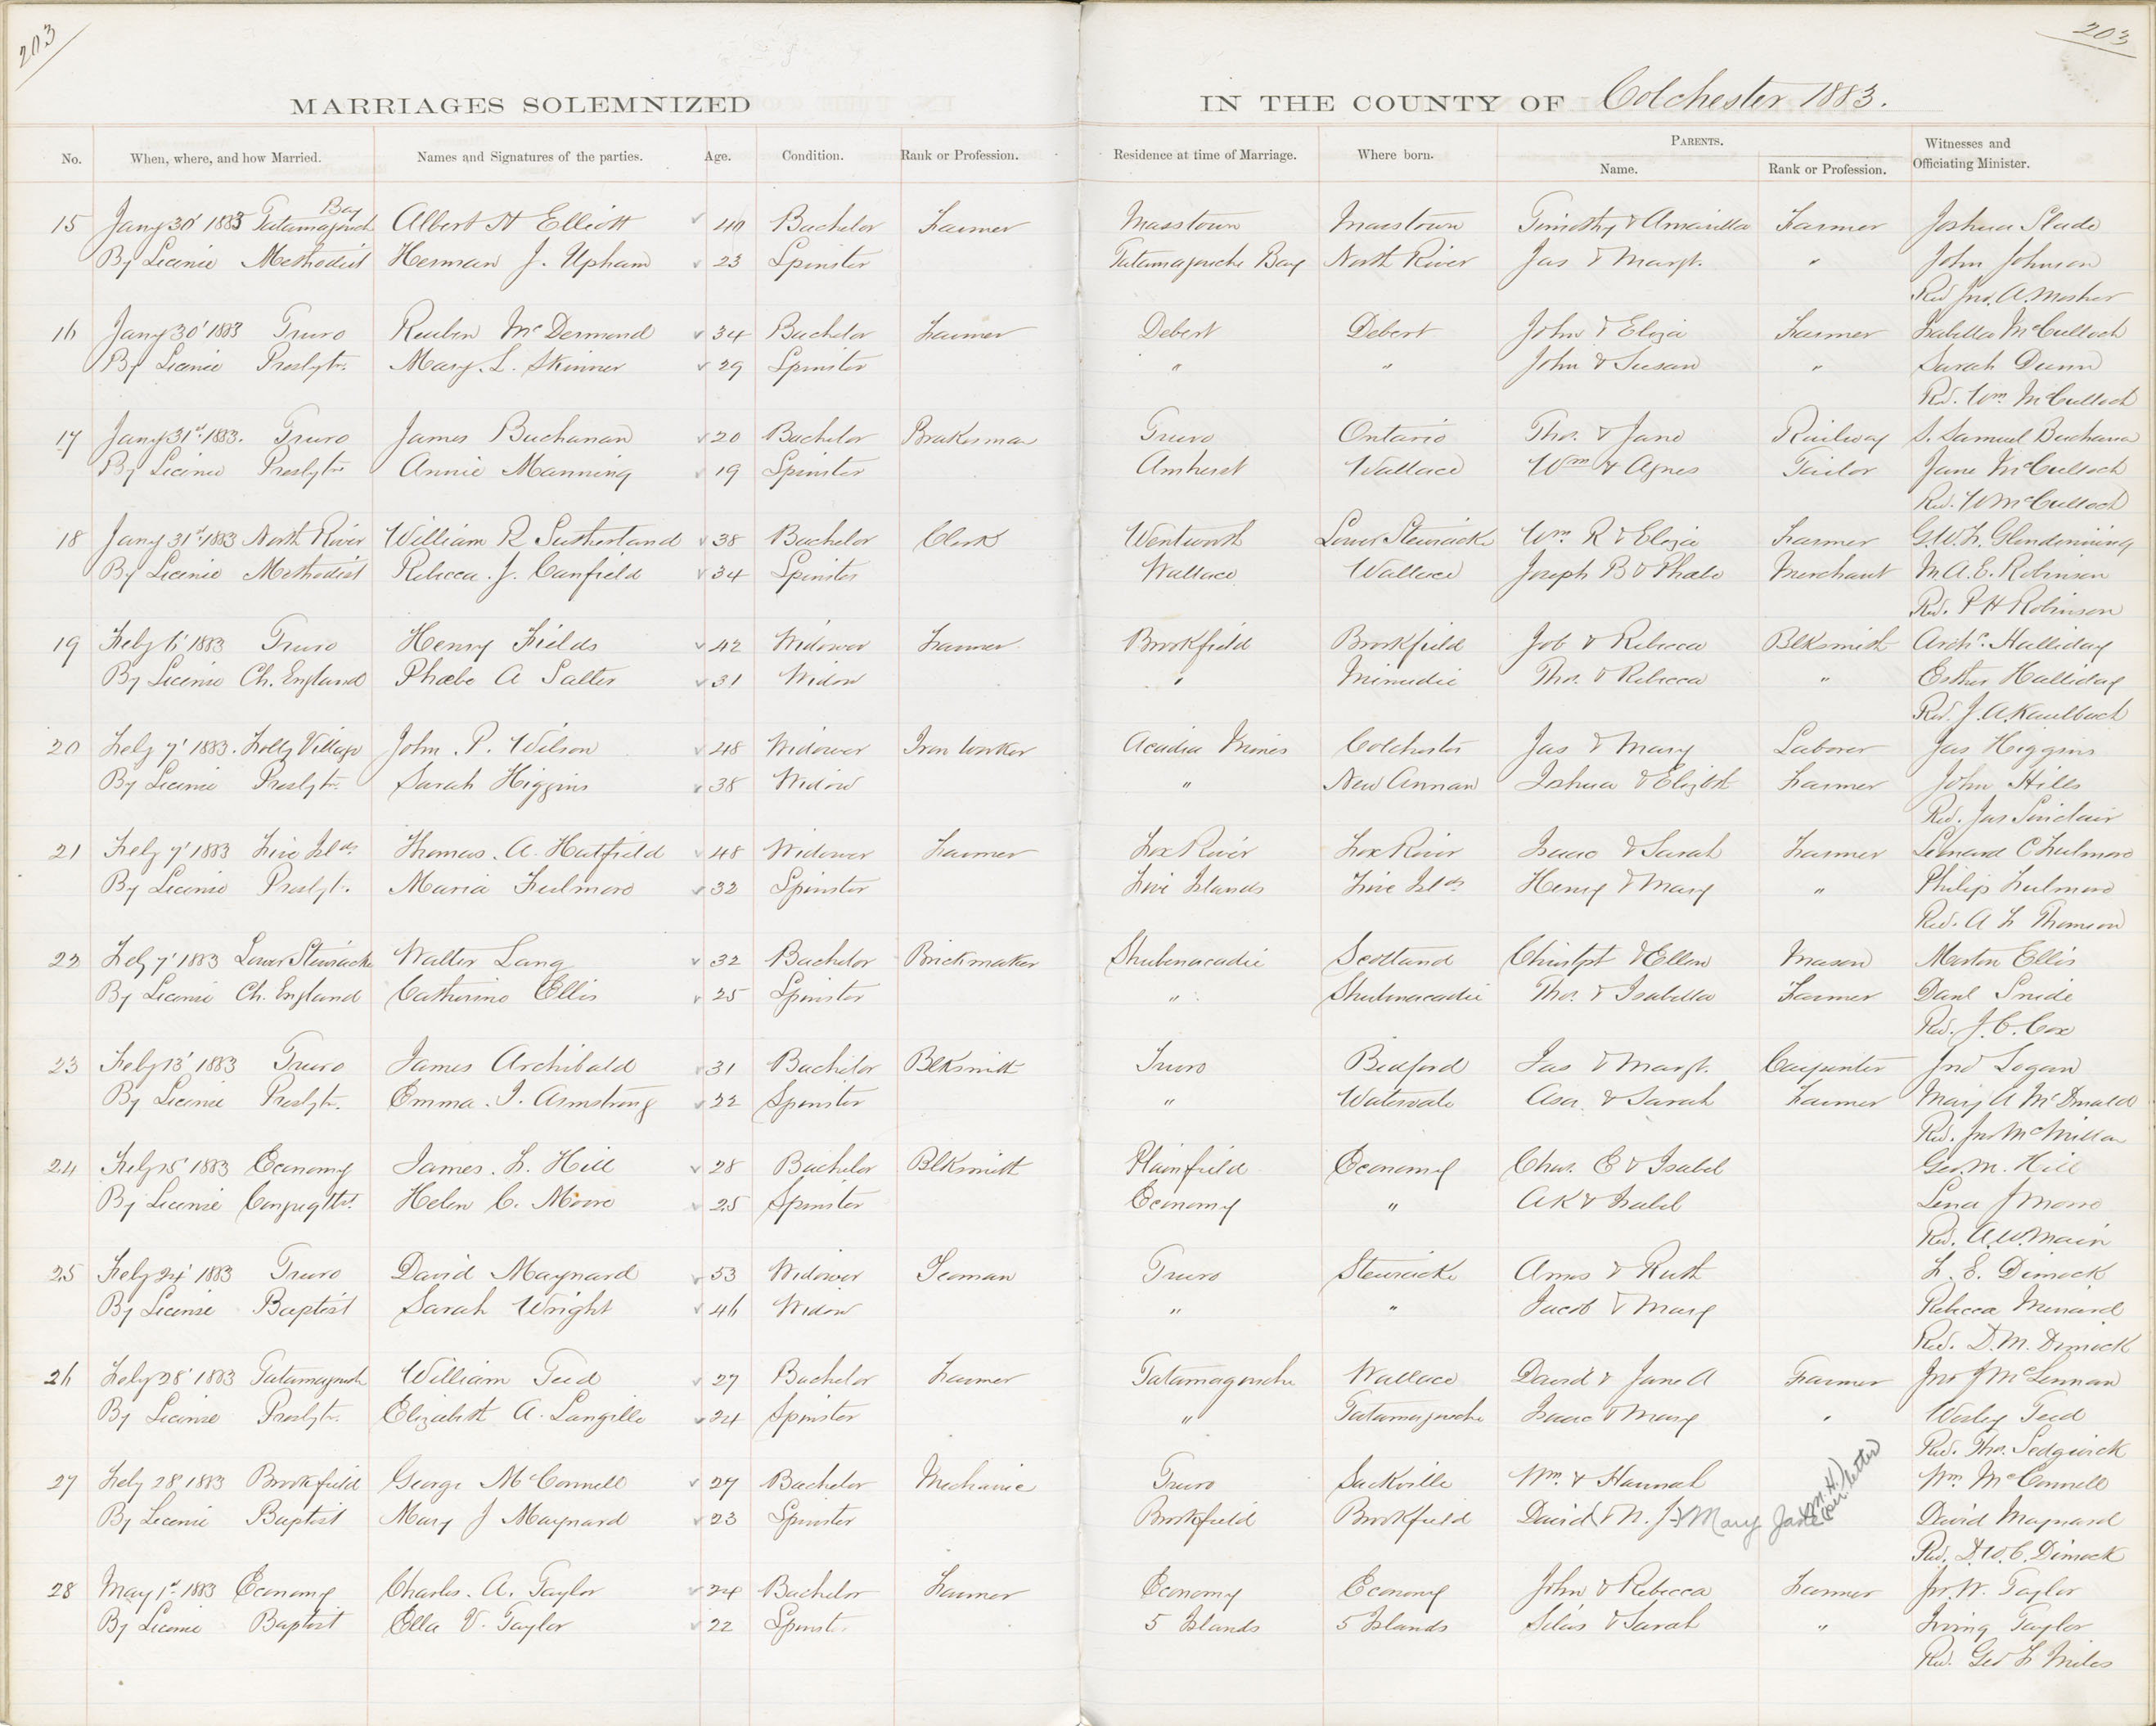 203
203
MARRIAGES SOLEMNIZED IN THE COUNTY OF Colchester 1883.
No. When, where, and how Married. Names and Signatures of the parties. Age. Condition. Rank or Profession. Residence at time of Marriage. Where born. PARENTS. Name. Rank or Profession. Witnesses and Officiating Minister.
15 Jany 30' 1883 Tatamagouch Bay Albert H Elliott 40 Bachelor Farmer Masstown Masstown Timothy & Farmer Joshua Slade
By License Methodist Herman J. Upham 23 Spinster Tatamagouche Bay North River Jas & Margt. " John Johnson
Rev Jno. A. Mosher
16 Jany 30' 1883 Truro Reuben McDermond 34 Bachelor Farmer Debert Debert John & Eliza Farmer Isabella McCulloch
By License Presbytn. Mary. L. Skinner 29 Spinster " " John & Susan " Sarah Dunn
Rd. Wm. McCulloch
17 Jany 31st 1883. Truro James Buchanan 20 Bachelor Brakesman Truro Ontario Thos. & Jane Railway S. Samuel Buchanan
By License Presbytn Annie Manning 19 Spinster Amherst Wallace Wm & Agnes Tailor Jane McCulloch
Rd. W McCulloch
18 Jany 31st 1883 North River William R Sutherland 38 Bachelor Clerk Wentworth Lower Stewiacke Wm. R & Eliza Farmer G.W.F. Glendenning
By License Methodist Rebecca. J. Canfield 34 Spinster Wallace Wallace Joseph B & Phebe Merchant M.A.E. Robinson
Rd. P H Robinson
19 Feby 6' 1883 Truro Henry Fields 42 Widower Farmer Brookfield Brookfield Job & Rebecca Blksmith Archd. Halliday
By License Ch. England Phœbe A Salter 31 Widow " Minudie Thos. & Rebecca " Esther Halliday
Rev. J. A. Kaulbach
20 Feby 7' 1883. Folly Village John. P. Wilson 48 Widower Iron worker Acadia Mines Colchester Jas & Mary Laborer Jas Higgins
By License Presbytn. Sarah Higgins 38 Widow " New Annan Joshua & Elizbth Farmer John Hills
Rd. Jas Sinclair
21 Feby 7' 1883 Five Islds. Thomas. A. Hatfield 48 Widower Farmer Fox River Fox River Isaac & Sarah Farmer Leonard C Fulmore
By License Presbyt. Maria Fulmore 32 Spinster Five Islands Five Islds Henry & Mary " Philip Fulmore
Rd. A F Thomson
22 Feby 7' 1883 Lower Stewiacke Walter Lang 32 Bachelor Brickmaker Shubenacadie Scotland Christpr & Ellen Mason Marton Ellis
By License Ch. England Catherine Ellis 25 Spinster " Shubenacadie Thos. & Isabella Farmer Danl Snide
Rd. J. C. Cox
23 Feby 13' 1883 Truro James Archibald 31 Bachelor Blksmith Truro Bedford Jas & Margt. Carpenter Jno Logan
By License Presbytn. Emma. J. Armstrong 22 Spinster " Watervale Asa & Sarah Farmer Mary A McDonald
Rd. Jno McMillan
24 Feby 15' 1883 Economy James. F. Hill 28 Bachelor Blksmith Plainfield Economy Chas. E & Isabel Geo. M. Hill
By License Congregtnl. Helen C. Moore 25 Spinster Economy " A K & Isabel Lena J Moore
Rd. A. W. Main
25 Feby 24' 1883 Truro David Maynard 53 Widower Yeoman Truro Stewiacke Amos & Ruth L. E. Dimock
By License Baptist Sarah Wright 46 Widow " " Jacob & Mary Rebecca Menard
Rd. D. M. Dimock
26 Feby 28' 1883 Tatamagouche William Teed 27 Bachelor Farmer Tatamagouche Wallace David & Jane A Farmer Jno J McLennan
By License Presbytn. Elizabeth A. Langille 24 Spinster " Tatamagouche Isaac & Mary " Wesley Teed
Rd. Thos. Sedgwick
27 Feby 28' 1883 Brookfield George McConnell 27 Bachelor Mechanic Truro Sackville Wm. & Hannah Wm. McConnell
By License Baptist Mary J Maynard 23 Spinster Brookfield Brookfield David & N. J. & Mary Jane (M.H.) letter David Maynard
Rd. D. W. C. Dimock
28 May 1st. 1883 Economy Charles. A. Taylor 24 Bachelor Farmer Economy Economy John & Rebecca Farmer Jno. W. Taylor
By License Baptist Ella V. Taylor 22 Spinst. 5 Islands 5 Islands Silas & Sarah " Irving Taylor
Rd. Geo F Miles